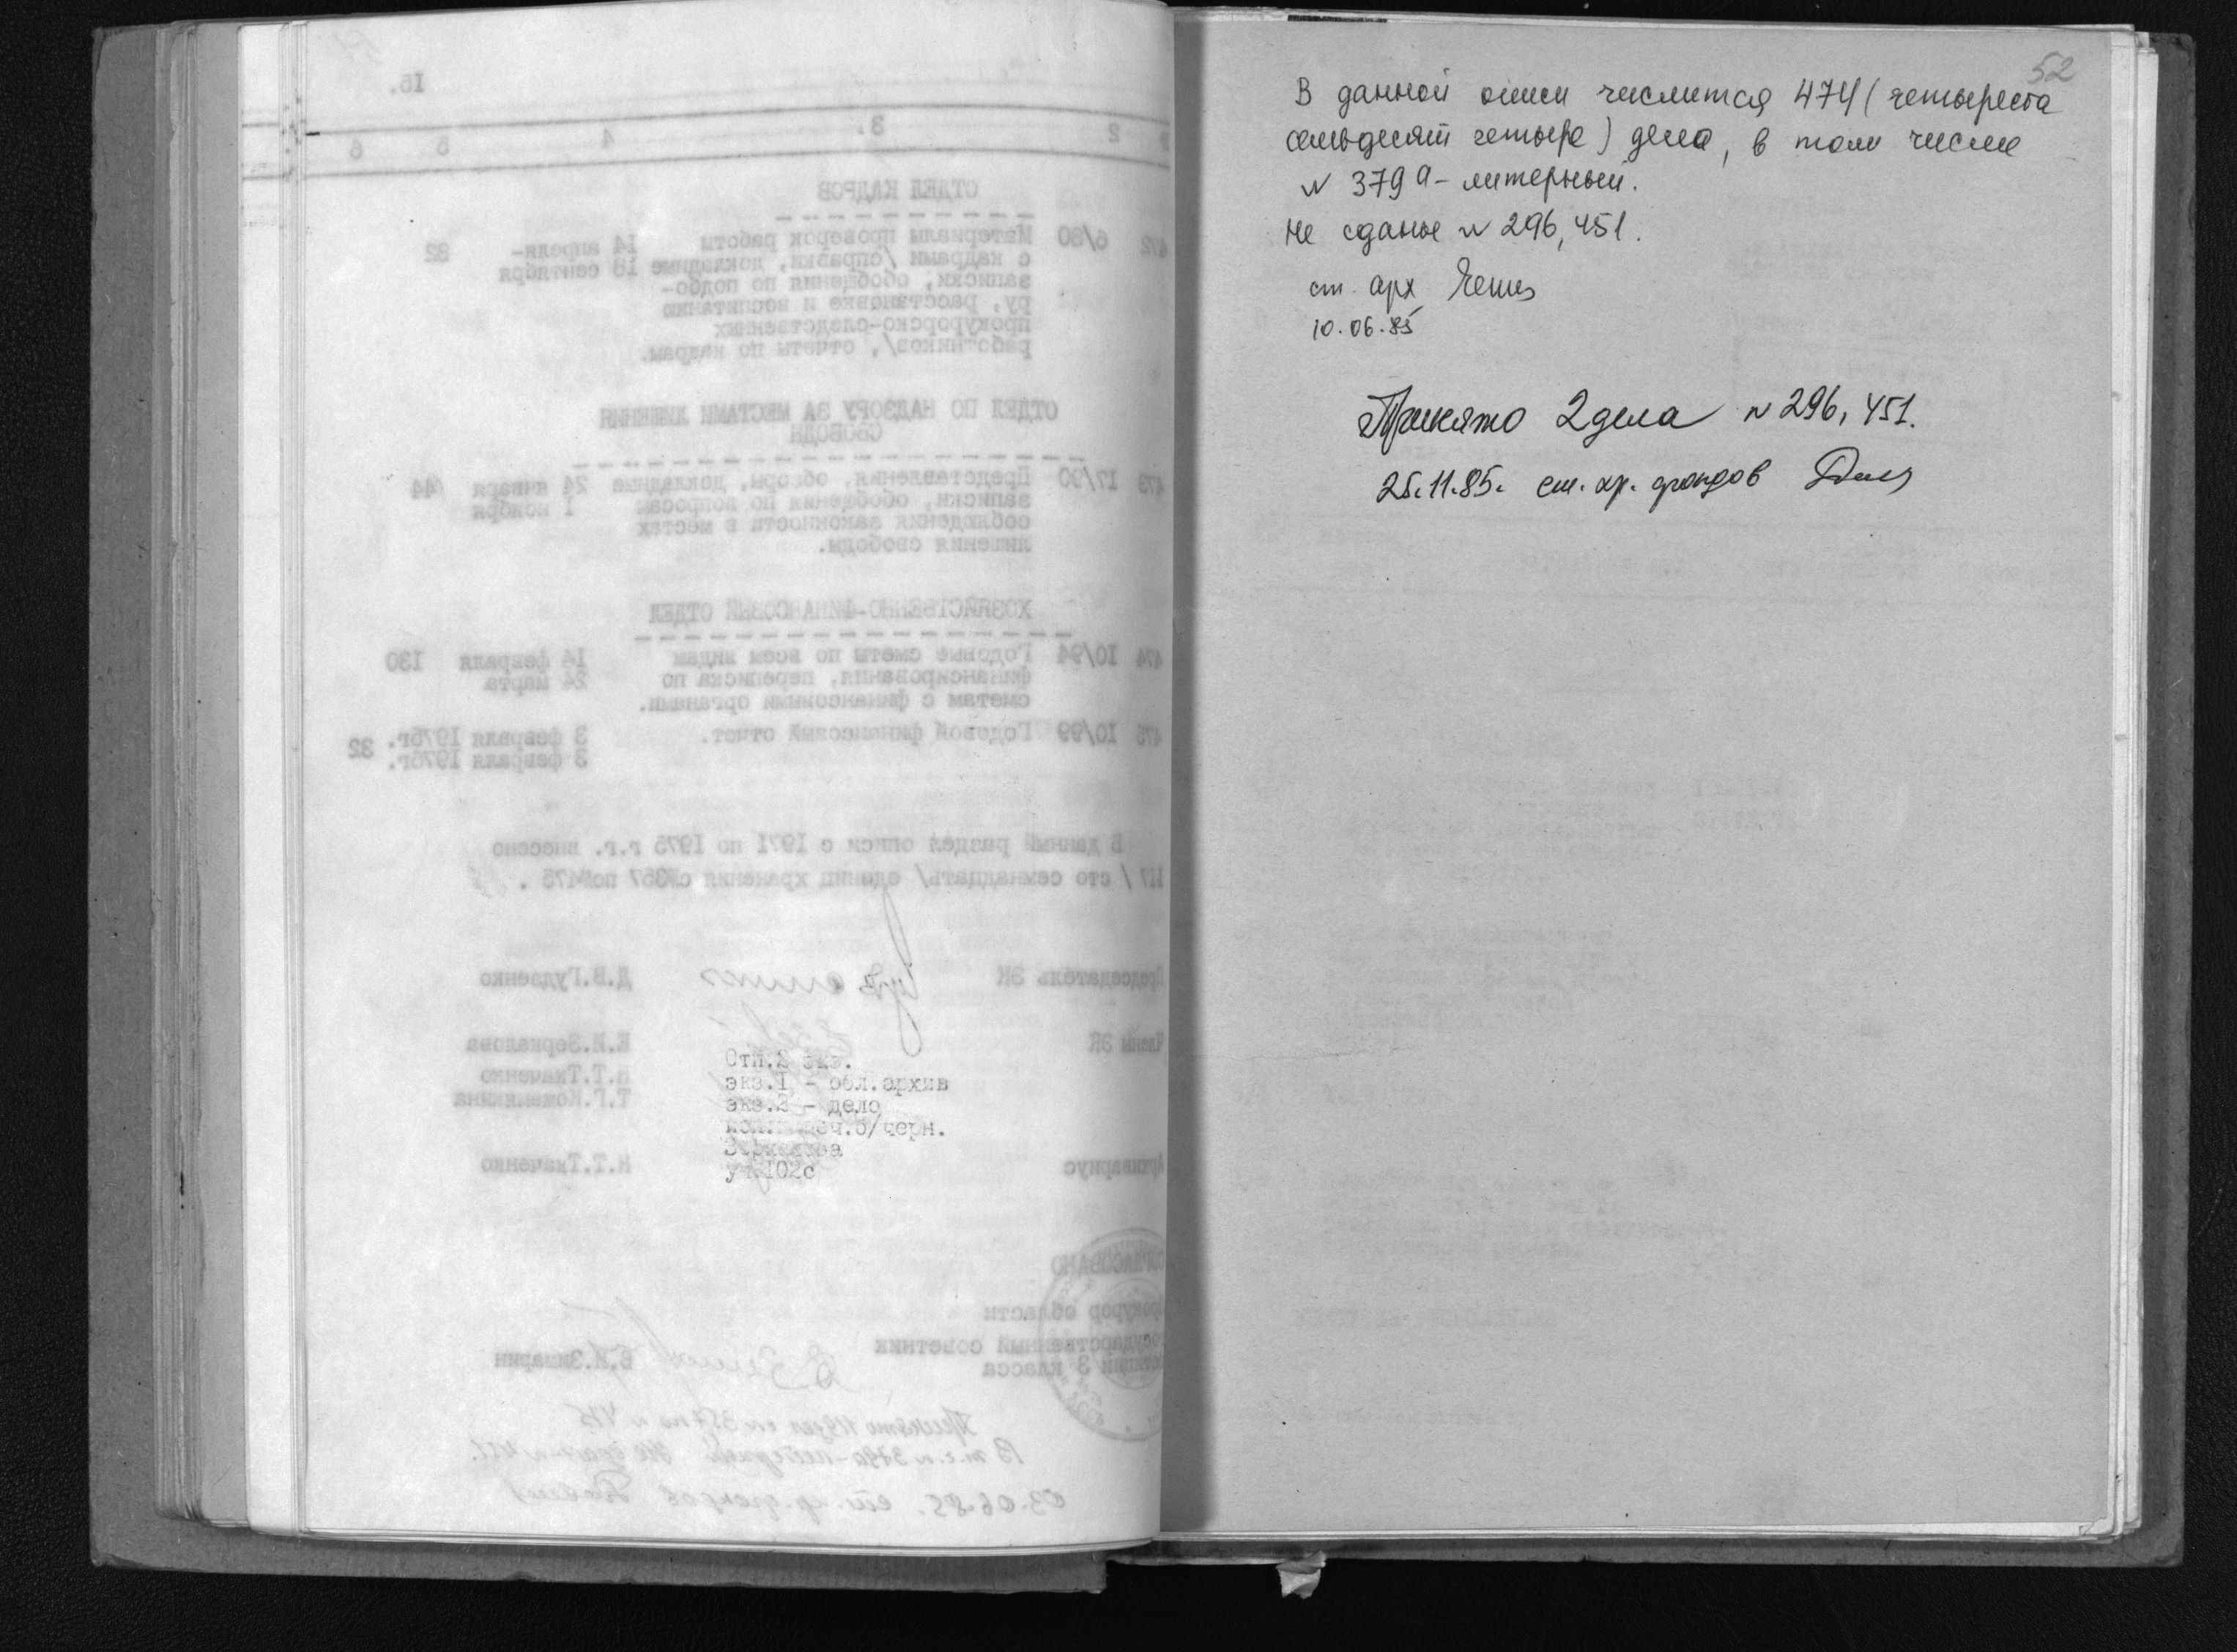 16.
2 3. 4 5 6
ОТДЕЛ КАДРОВ
472 6/80 Материалы проверок работы 14 апреля- 82
с кадрами /справки, докладные 18 сентября
записки, обобщения по подбо-
ру, расстановке и воспитанию
прокурорско-следственных
работников/, отчеты по кадрам.
ОТДЕЛ ПО НАДЗОРУ ЗА МЕСТАМИ ЛИШЕНИЯ
СВОБОДЫ
473 17/90 Представления, обзоры, докладные 24 января 44
записки, обобщения по вопросам 1 ноября
соблюдения законности в местах
лишения свободы.
ХОЗЯЙСТВЕННО-ФИНАНСОВЫЙ ОТДЕЛ
474 10/94 Годовые сметы по всем видам 14 февраля 130
финансирования, переписка по 24 марта
сметам с финансовыми органами.
475 10/99 Годовой финансовый отчет. 3 февраля 1975г. 32
3 февраля 1976г.
В данный раздел описи с 1971 по 1975 г.г. внесено
117 /сто семнадцать/ единиц хранения с№357 по№475 .
Председатель ЭК Д.В.Гудзенко
Члены ЭК Е.И.Зеркалова
Н.Т.Ткаченко
Т.Г.Кожемякина
Архивариус Н.Т.Ткаченко
Отп.2 экз.
экз.1 - обл.архив
экз.2 - дело
б/черн.
Зеркалова
уч.102с
СОГЛАСОВАНО
Прокурор области
Государственный советник
юстиции 3 класса В.И.Зимарин
03.06.85. ст. хр. фондов
52
В данной описи числится 474 (четыреста
семьдесят четыре) дела, в том числе
№ 379а - литерный.
Не сданы № 296, 451.
ст. арх
10.06.85
Принято 2 дела № 296, 451.
25.11.85. ст. хр. фондов